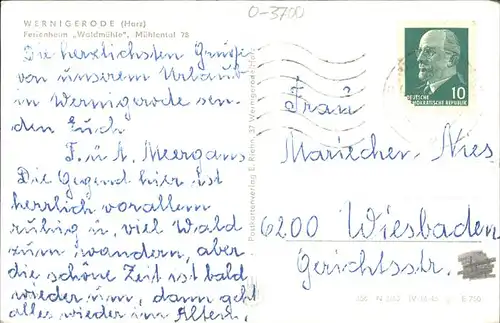 WERNIGERODE (Harz)
Ferienheim „Waldmühle", Mühlental 78
0-3700
Die herzlichsten Grüße
von unserem Urlaub
in Wernigerode sen-
den Euch
F. u. A. Meergans
Die Gegend hier ist
herrlich, vorallem
ruhig u. viel Wald
zum wandern, aber
die schöne Zeit ist bald
wieder um, dann geht
alles wieder im Alten.
10
DEUTSCHE
DEMOKRATISCHE REPUBLIK
Frau
Mariechen Nies
6200 Wiesbaden
Gerichtsstr.